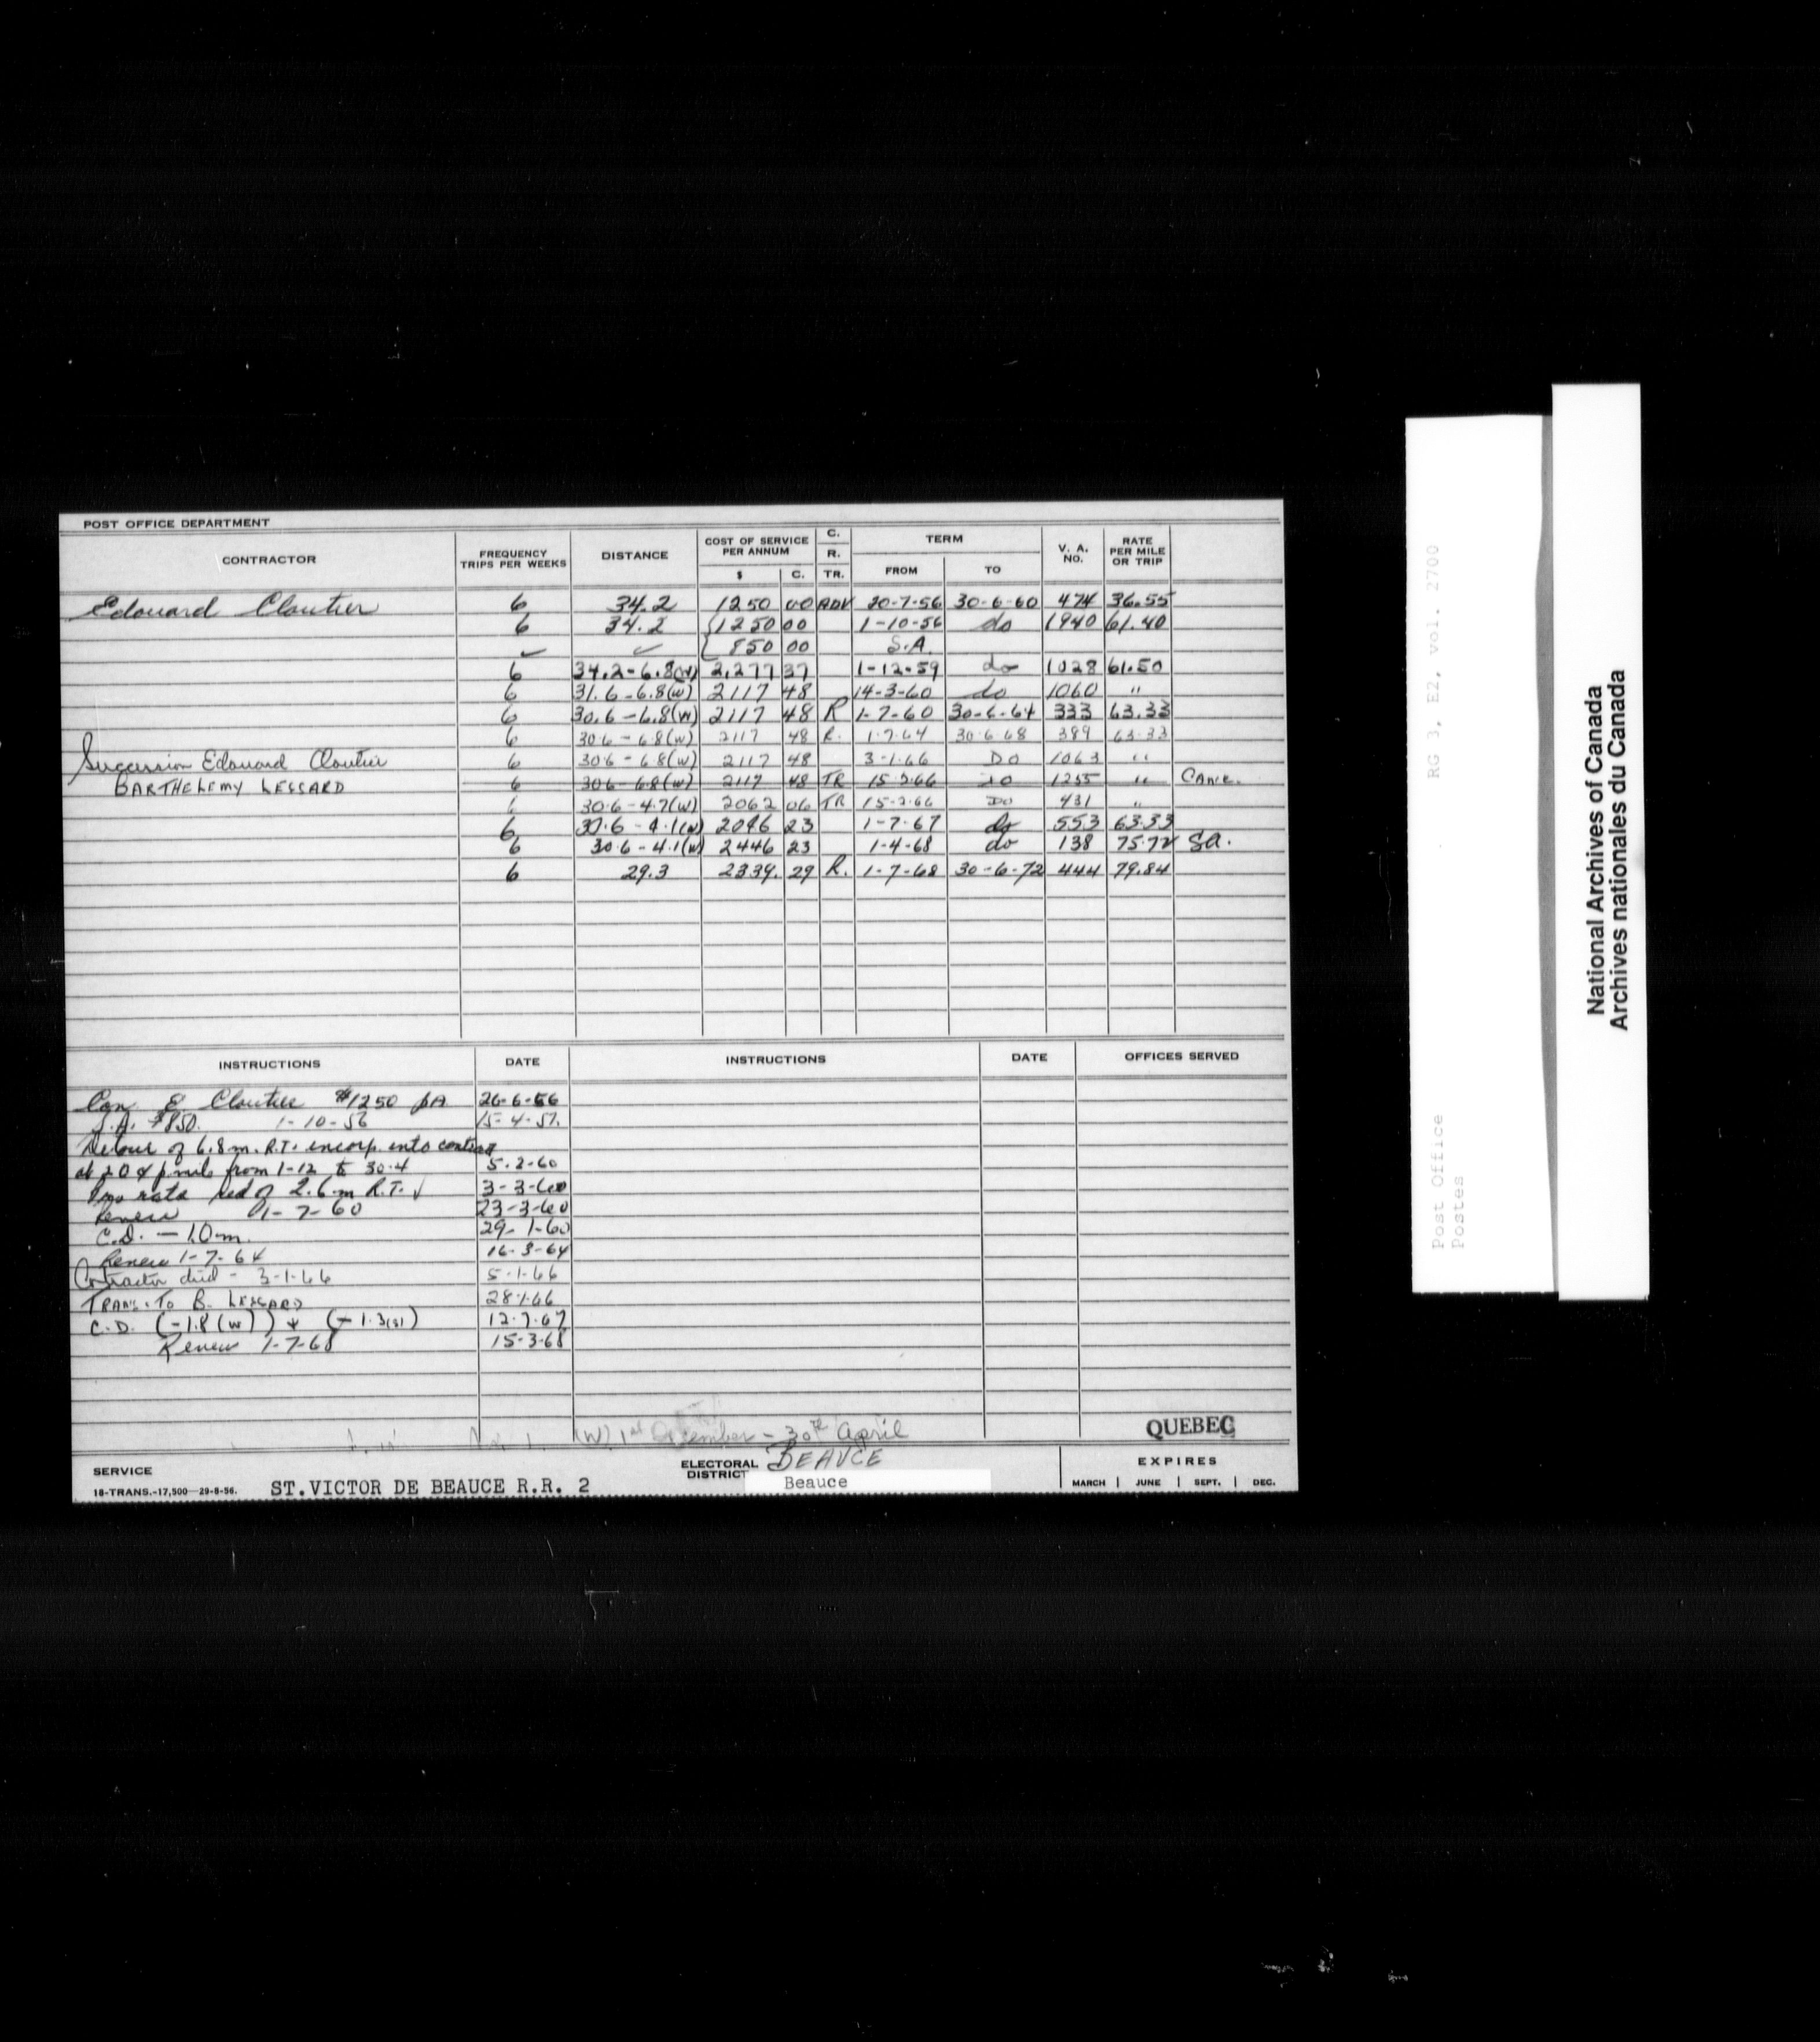 POST OFFICE DEPARTMENT
CONTRACTOR FREQUENCY TRIPS PER WEEKS DISTANCE COST OF SERVICE PER ANNUM $ C. C. R. TR. TERM FROM TO V. A. NO. RATE PER MILE OR TRIP
Edouard Cloutier 6 34.2 1250 00 ADV 20-7-56 30-6-60 474 36.55
6 34.2 {1250 00 1-10-56 do 1940 61.40
✓ ✓ {850 00 S.A.
6 34.2-6.8(W) 2,277 37 1-12-59 do 1028 61.50
6 31.6-6.8(W) 2117 48 14-3-60 do 1060 "
6 30.6-6.8(W) 2117 48 R 1-7-60 30-6-64 333 63.33
6 30.6-6.8(W) 2117 48 R. 1-7-64 30-6-68 389 63-33
Succession Edouard Cloutier 6 30.6-6.8(W) 2117 48 3-1-66 DO 1063 "
BARTHELEMY LESSARD 6 30.6-6.8(W) 2117 48 TR 15-2-66 DO 1255 " Canc.
6 30.6-4.7(W) 2062 06 TR 15-2-66 DO 431 "
6 30.6-4.1(W) 2046 23 1-7-67 do 553 63.33
6 30.6-4.1(W) 2446 23 1-4-68 do 138 75.72 Sa.
6 29.3 2339. 29 R. 1-7-68 30-6-72 444 79.84
INSTRUCTIONS DATE INSTRUCTIONS DATE OFFICES SERVED
Con E Cloutier $1250 pA 26-6-56
S.A. $850. 1-10-56 15-4-57.
Detour of 6.8 m. R.T. incorp. into contract
at 20 ¢ p mile from 1-12 to 30-4 5-2-60
Pro rata red of 2.6 m R.T. 3-3-60
Renew 1-7-60 23-3-60
C.D. — 1.0 m. 29-1-60
Renew 1-7-64 16-3-64
Contractor died - 3-1-66 5-1-66
TRANS. TO B. LESSARD 28-1-66
C.D. (-1.8 (W)) + (-1.3(S)) 12-7-67
Renew 1-7-68 15-3-68
(W) 1st December - 30th April
QUEBEC
SERVICE
18-TRANS.-17,500—29-8-56.
ST.VICTOR DE BEAUCE R.R. 2
ELECTORAL DISTRICT BEAUCE
Beauce
EXPIRES
MARCH | JUNE | SEPT. | DEC.
RG 3, E2, vol. 2700
Post Office
Postes
National Archives of Canada
Archives nationales du Canada